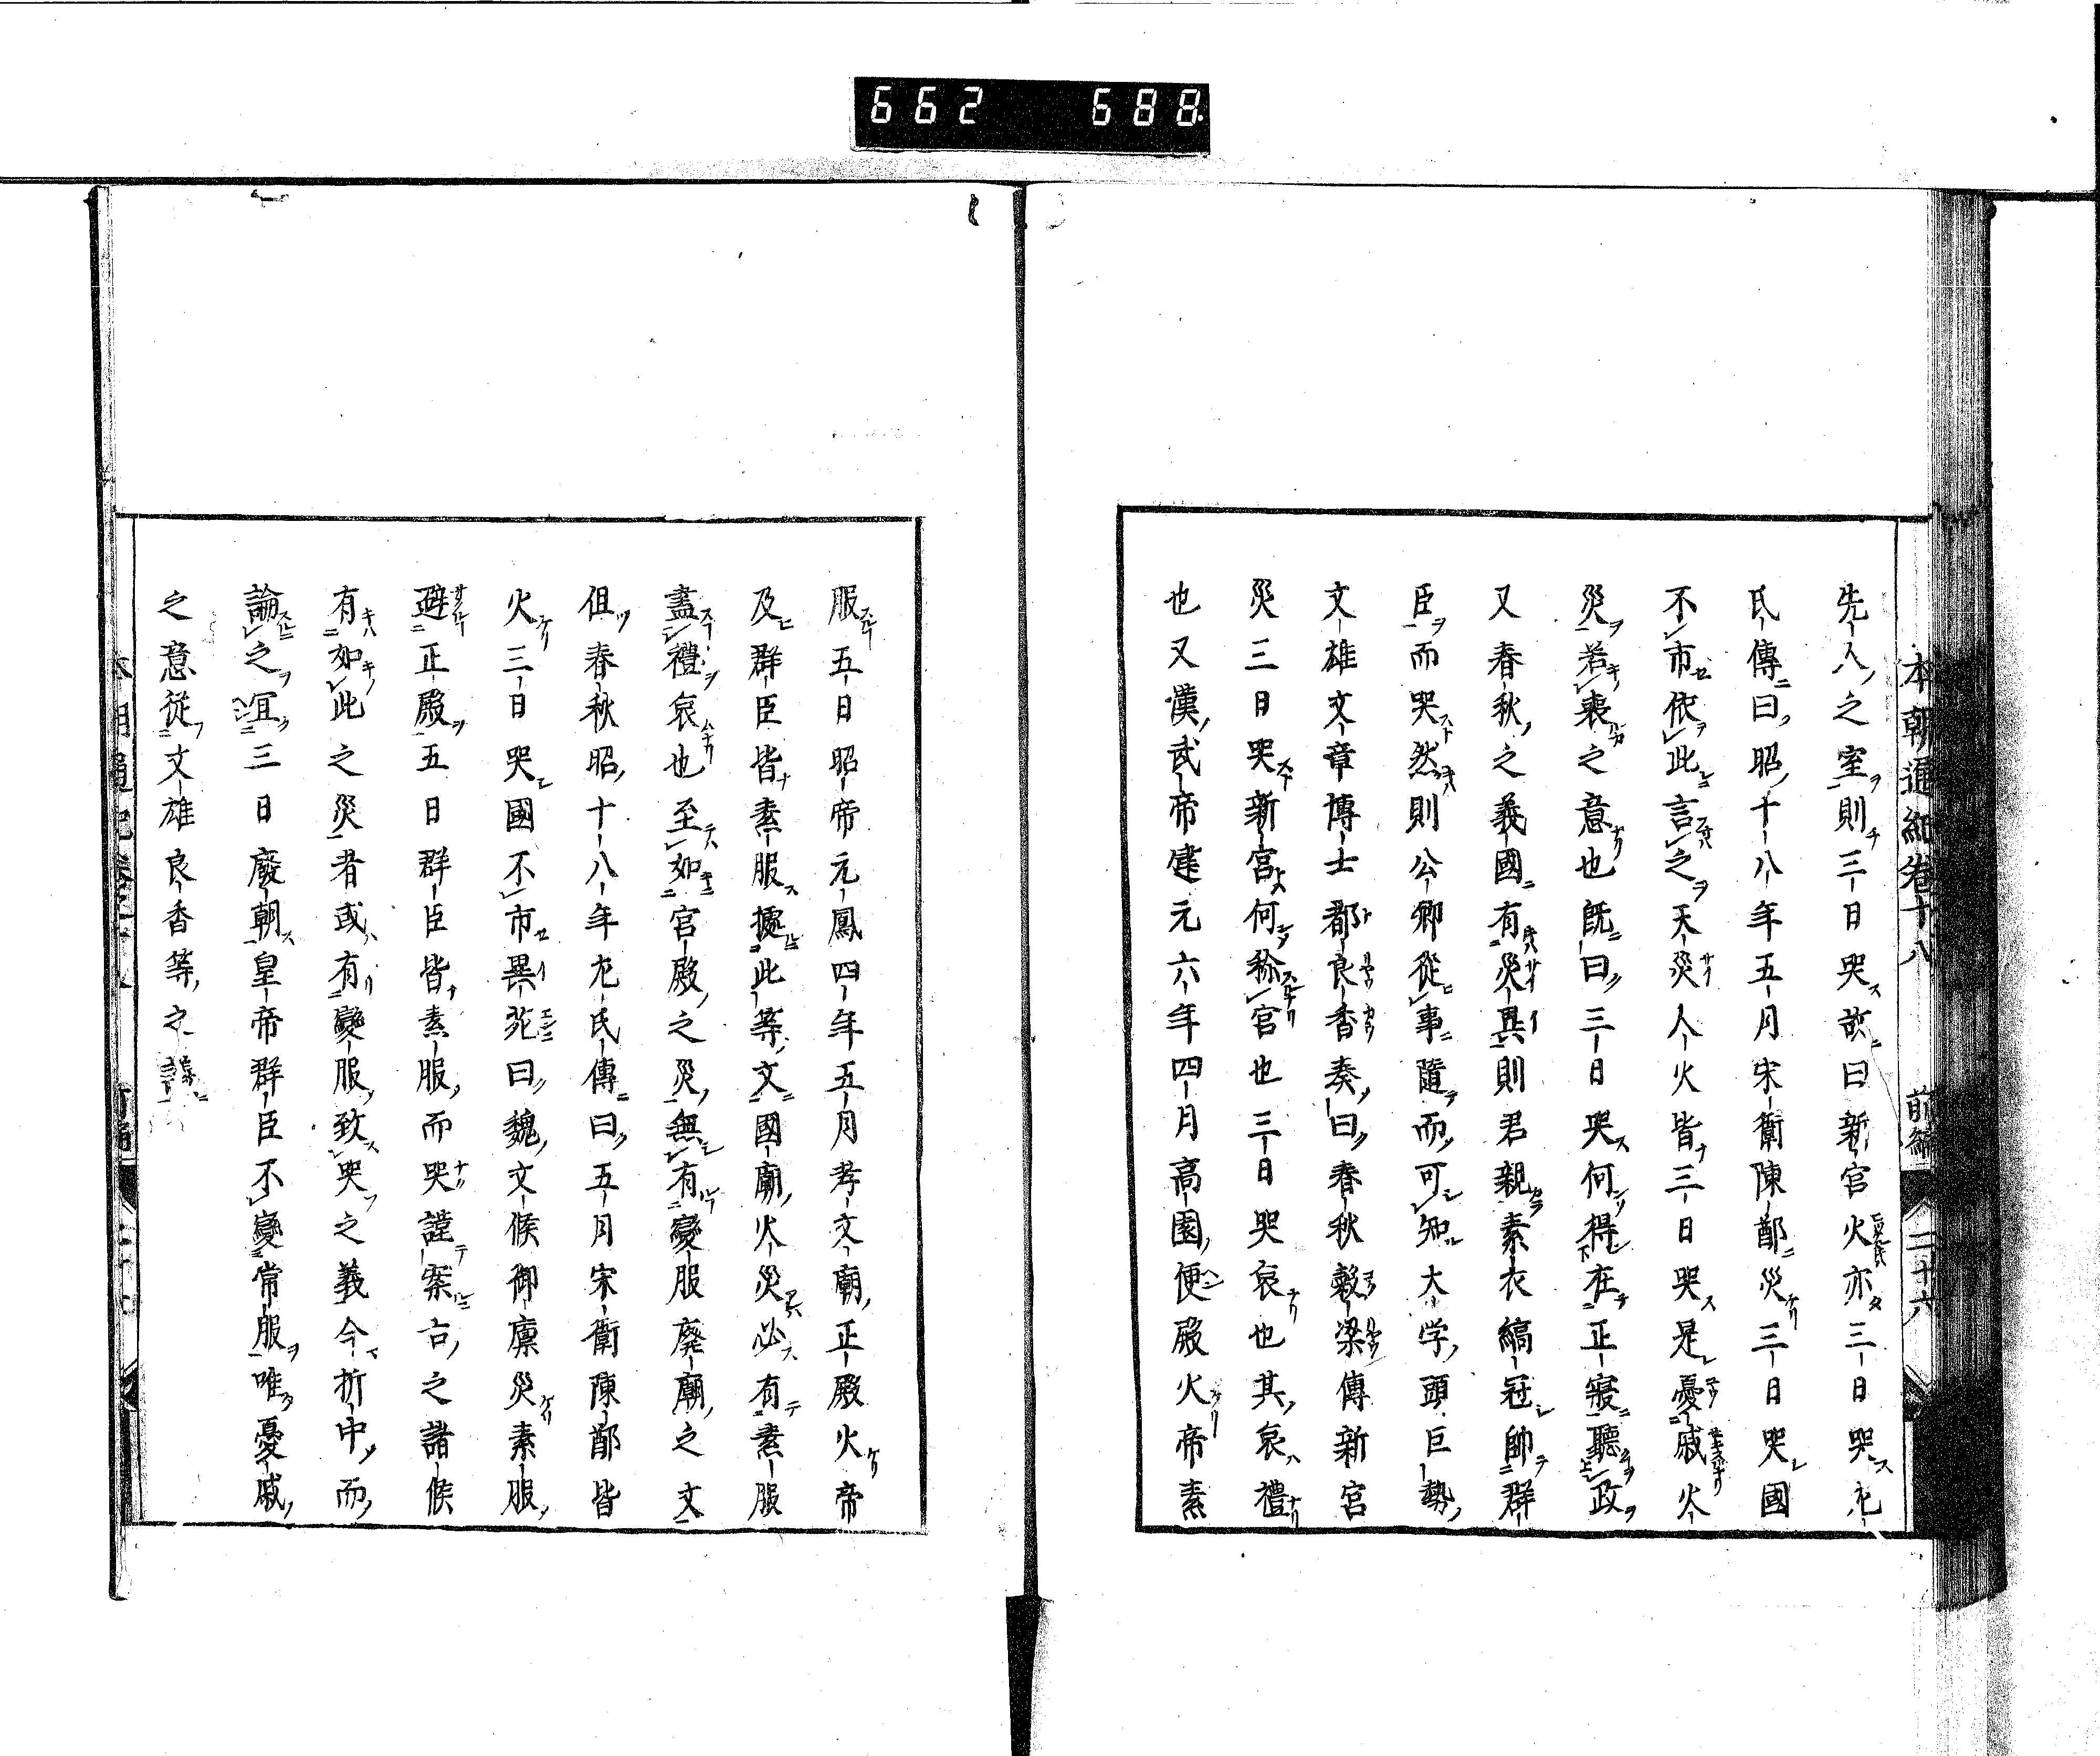 662 688
本朝通紀卷十八 前編 二十六
先人之室則三日哭故曰新宮火亦三日哭左
氏傳曰昭十八年五月宋衛陳鄭災三日哭國
不市依此言之天災人火皆三日哭是憂戚火
災若喪之意也既曰三日哭何得在正寢聽政
又春秋之義國有災異則君親素衣縞冠帥群
臣而哭然則公卿從事隨而可知大学頭巨勢
文雄文章博士都良香奏曰春秋穀梁傳新宮
災三日哭新宮何称宮也三日哭哀也其哀禮
也又漢武帝建元六年四月高園便殿火帝素
服五日昭帝元鳳四年五月孝文廟正殿火帝
及群臣皆素服據此等文國廟火災必有素服
盡禮哀也至如宮殿之災無有變服廢廟之文
但春秋昭十八年左氏傳曰五月宋衛陳鄭皆
火三日哭國不市異苑曰魏文侯御廩災素服
避正殿五日群臣皆素服而哭謹案古之諸侯
有如此之災者或有變服致哭之義今折中而
論之宜三日廢朝皇帝群臣不變常服唯憂戚
之意從文雄良香等之議